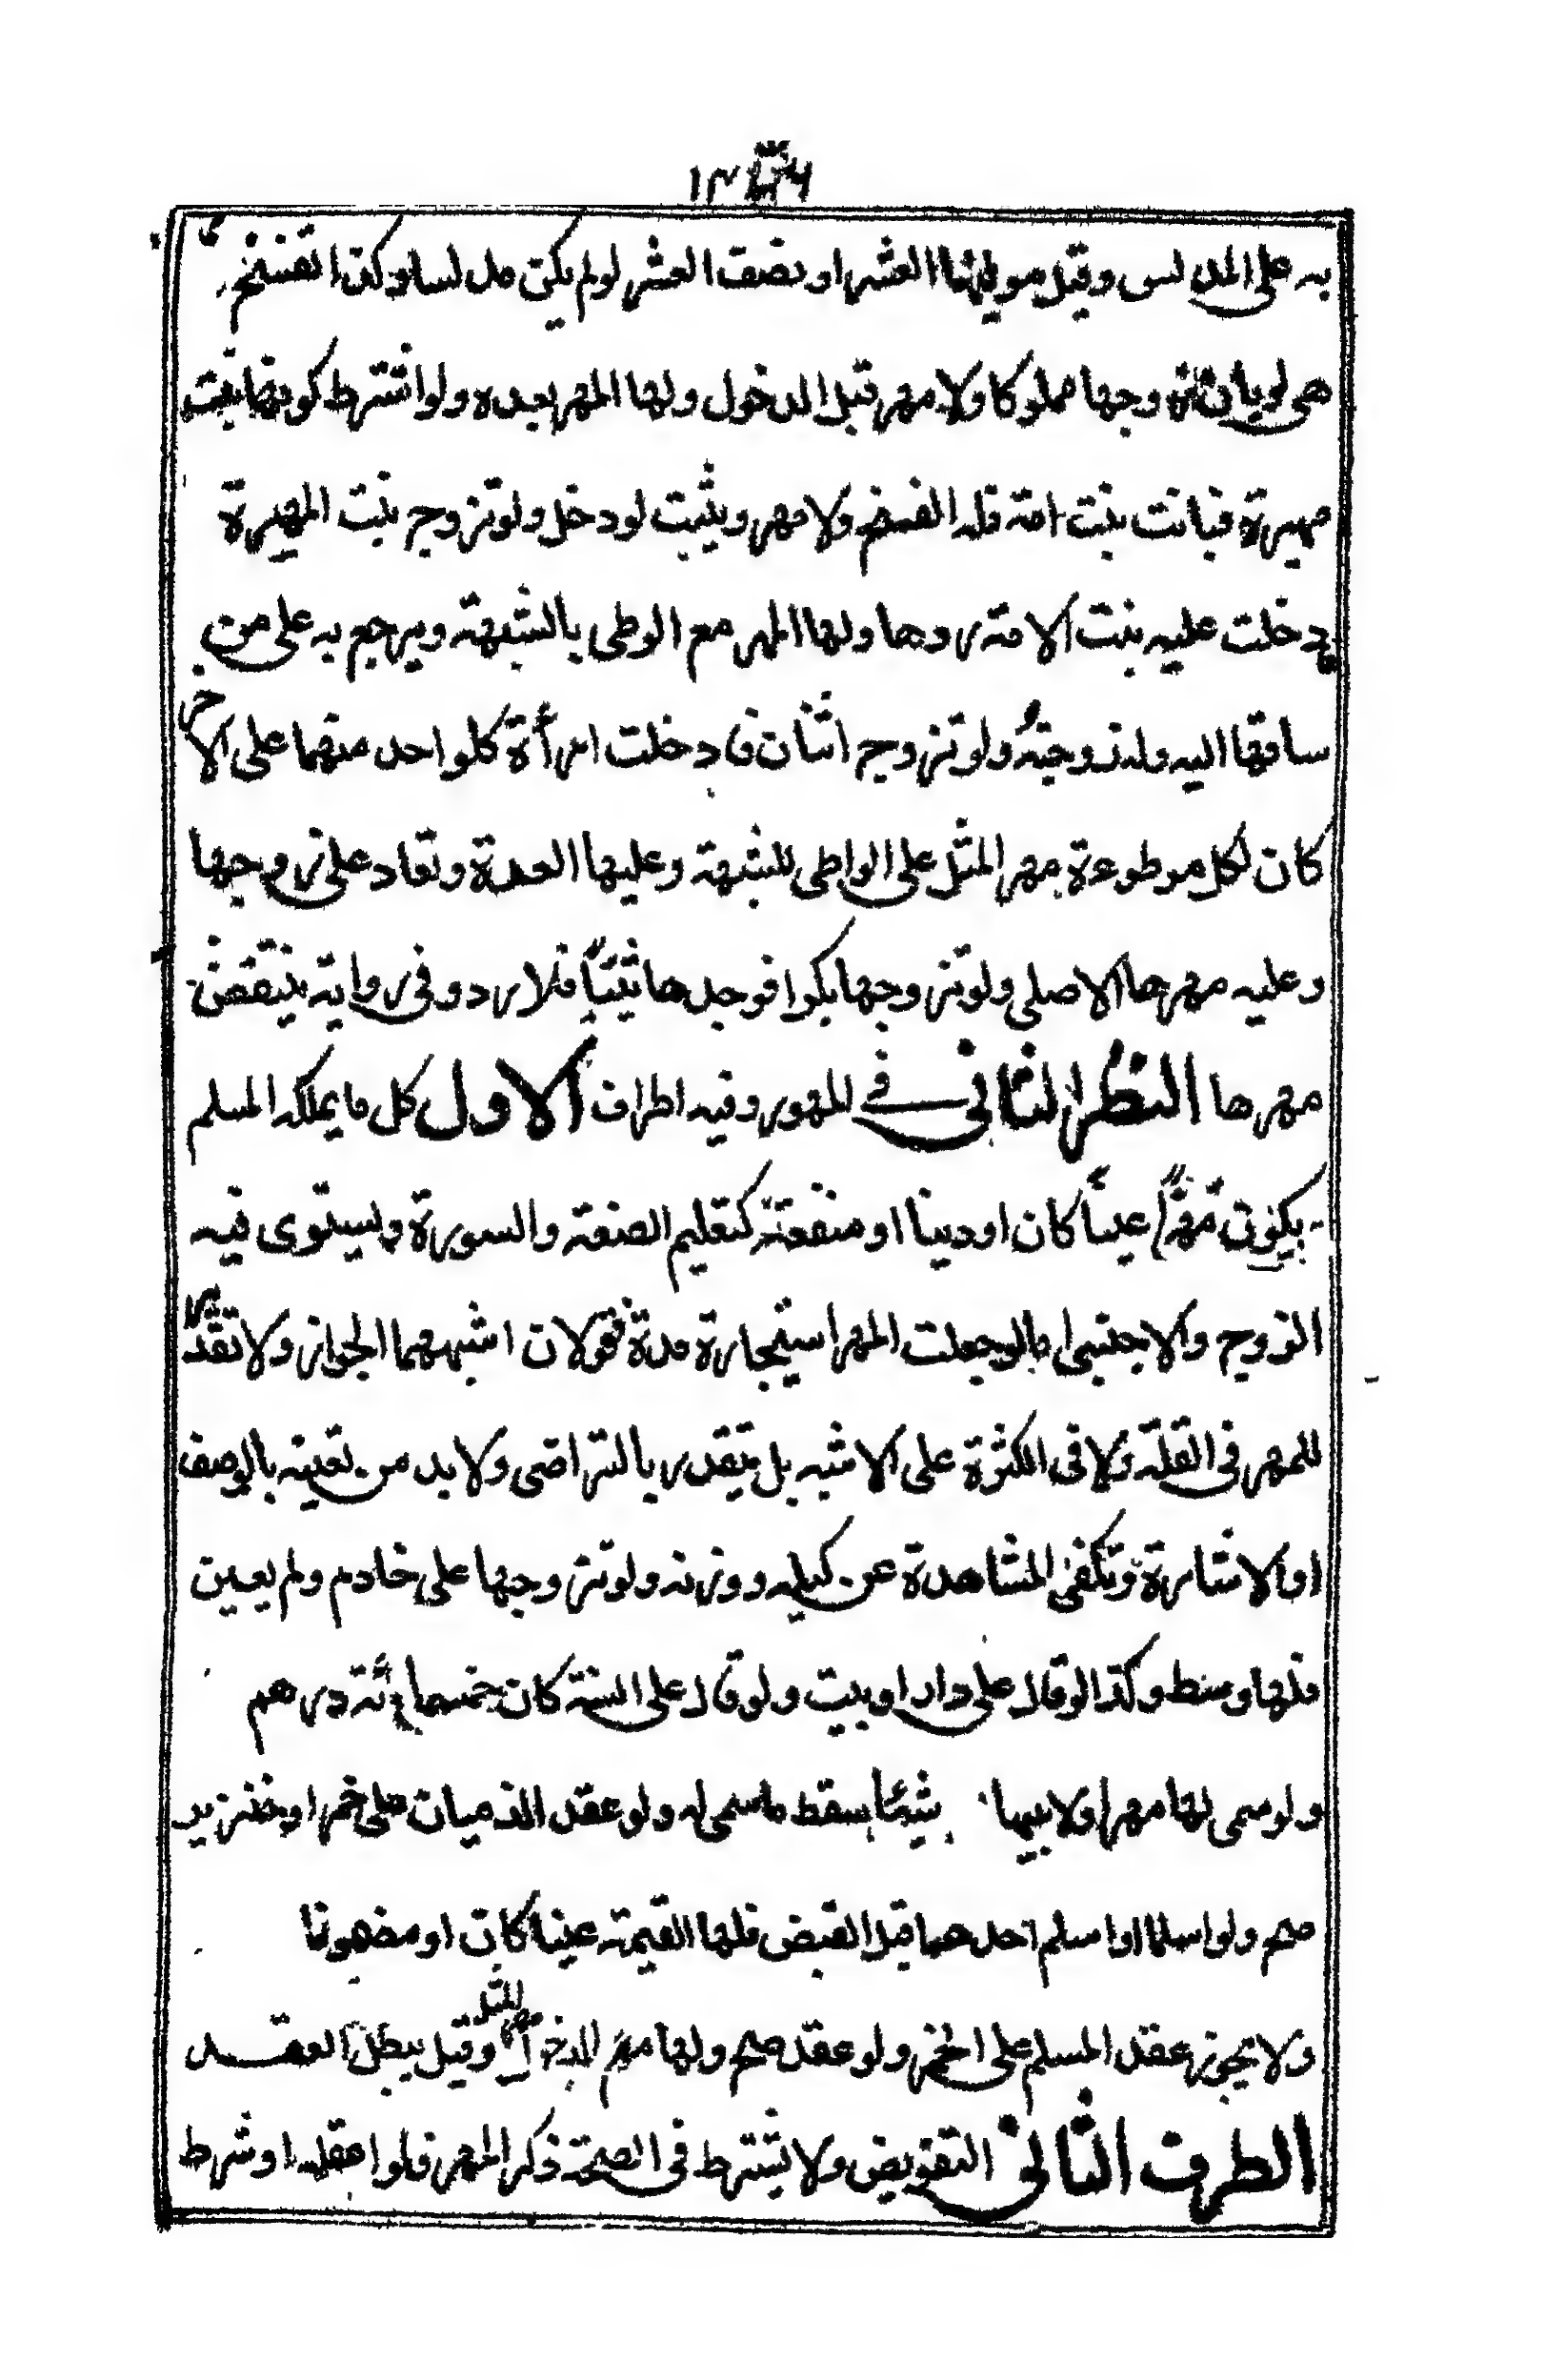 به على المدلس وقيل موليها العشر او نصف العشر لو لم يكن مدلسا وكذا تفسخ
هى لو بان زوجها مملوكا ولا مهر قبل الدخول ولها المهر بعده ولو اشترط كونها بنت
مهيرة فبانت بنت امة فله الفسخ ولا مهر ويثبت لو دخل ولو تزوج بنت المهيرة
فادخلت عليه بنت الامة ردها ولها المهر مع الوطى بالشبهة ويرجع به على من
ساقها اليه وله زوجته ولو تزوج اثنان فادخلت امرأة كل واحد منهما على الاخر
كان لكل موطوءة مهر المثل على الواطى للشبهة وعليها العدة وتعاد على زوجها
وعليه مهرها الاصلى ولو تزوجها بكرا فوجدها ثيبًا فلا رد وفى رواية ينقص
مهرها النظر الثانى فى المهور وفيه اطراف الاول كل ما يملكه المسلم
يكون مهرًا عينًا كان او دينا او منفعة كتعليم الصنعة والسورة ويستوى فيه
الزوج والاجنبى اما لو جعلت المهر استيجاره مدة فقولان اشبههما الجواز ولا تقدير
للمهر فى القلة ولا فى الكثرة على الاشبه بل يتقدر بالتراضى ولا بد من تعينه بالوصف
او الاشارة وتكفى المشاهدة عن كيله ووزنه ولو تزوجها على خادم ولم يعين
فلها وسط وكذا لو قال على دار او بيت ولو قال على السنة كان خمسمائة درهم
ولو سمى لها مهرا ولابيها شيئا سقط ما سمى له ولو عقد الذميان على خمر او خنزير
صح ولو اسلما او اسلم احدهما قبل القبض فلها القيمة عينا كان او مضمونا
ولا يجوز عقد المسلم على الخمر ولو عقد صح ولها مع الدخول مهر المثل وقيل يبطل العقد
الطرف الثانى التفويض ولا يشترط فى الصحة ذكر المهر فلو اغفله او شرط